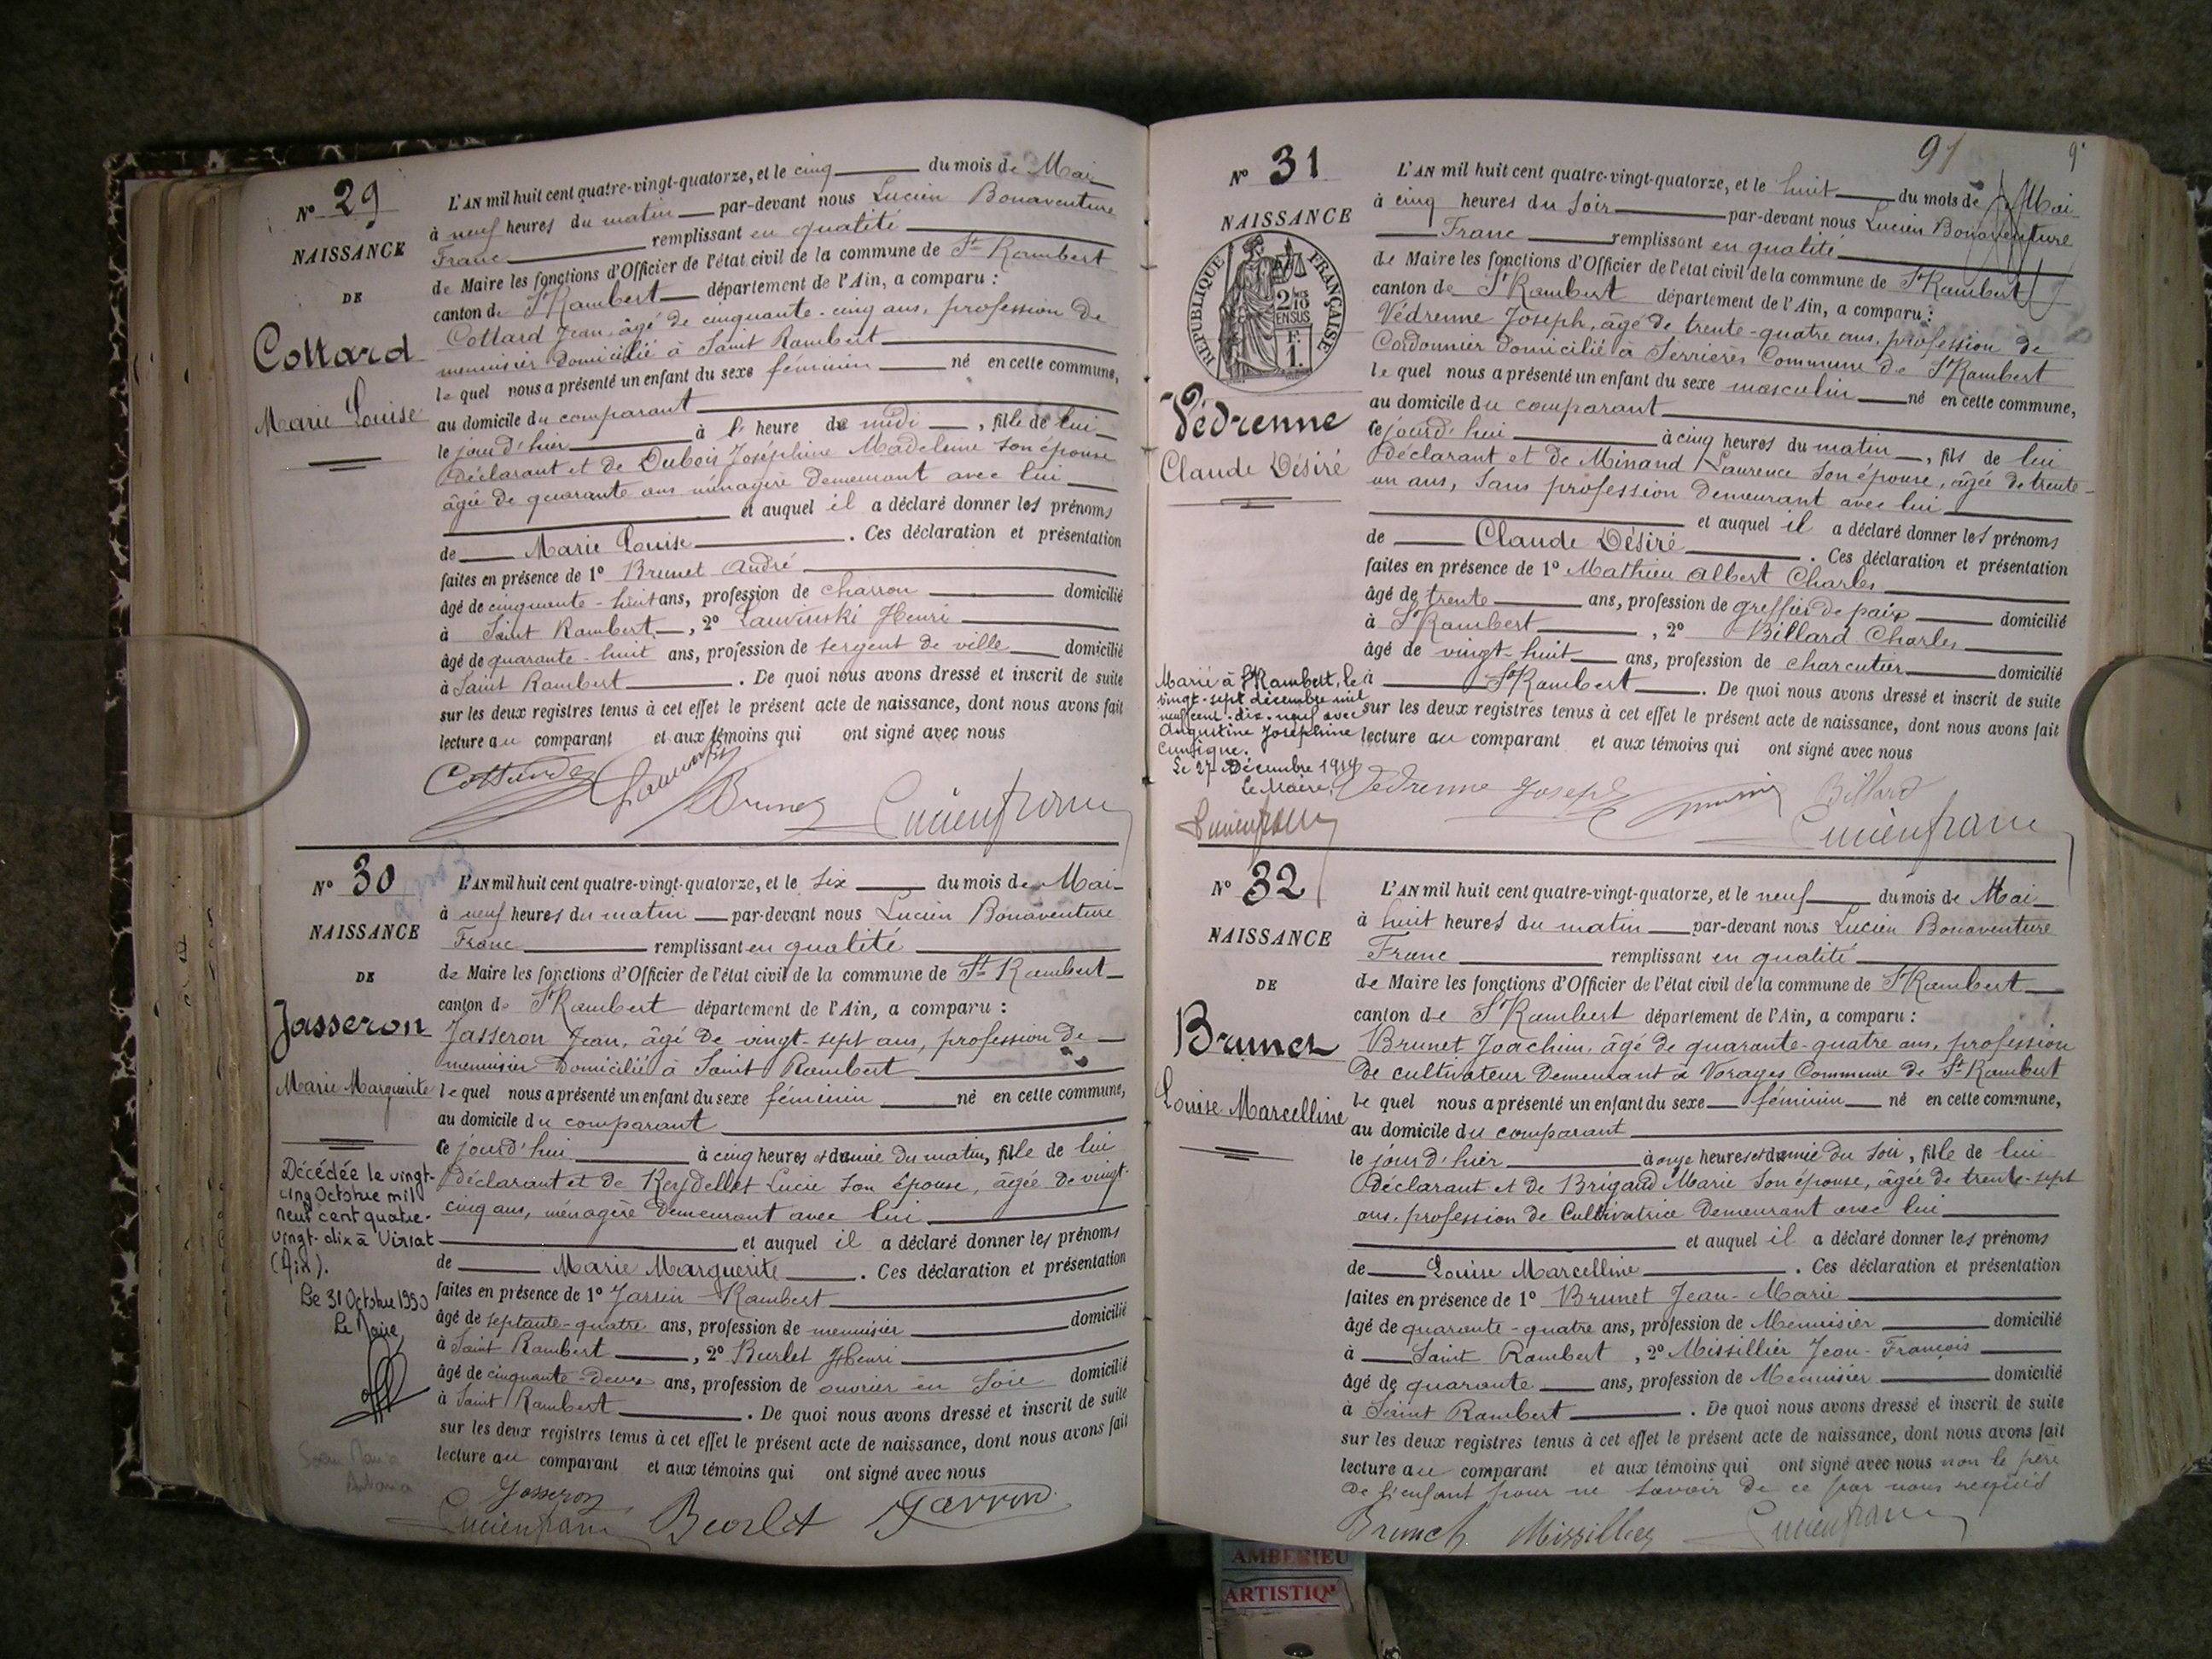 Nº 29
NAISSANCE
DE
Cottard
Marie Louise
L'AN mil huit cent quatre-vingt-quatorze, et le cinq du mois de Mai
à neuf heures du matin par-devant nous Lucien Bonaventure
Franc remplissant en qualité
de Maire les fonctions d'Officier de l'état civil de la commune de St Rambert
canton de St Rambert département de l'Ain, a comparu :
Cottard Jean, âgé de cinquante-cinq ans, profession de
menuisier domicilié à Saint Rambert
le quel nous a présenté un enfant du sexe féminin né en cette commune,
au domicile du comparant
le jour d'hier à l' heure de midi, fille de lui
déclarant et de Dubois Joséphine Madeleine son épouse
âgée de quarante ans ménagère demeurant avec lui
et auquel il a déclaré donner les prénoms
de Marie Louise. Ces déclaration et présentation
faites en présence de 1º Brunet André
âgé de cinquante-huit ans, profession de charron domicilié
à Saint Rambert, 2º Henri
âgé de quarante-huit ans, profession de sergent de ville domicilié
à Saint Rambert. De quoi nous avons dressé et inscrit de suite
sur les deux registres tenus à cet effet le présent acte de naissance, dont nous avons fait
lecture au comparant et aux témoins qui ont signé avec nous
Brunet Lucien franc
Nº 30
NAISSANCE
DE
Jasseron
Marie Marguerite
Décédée le vingt-
cinq Octobre mil
neuf cent quatre-
vingt-dix à Viriat
(Ain).
Le 31 Octobre 1990
Le Maire
L'AN mil huit cent quatre-vingt-quatorze, et le six du mois de Mai
à neuf heures du matin par-devant nous Lucien Bonaventure
Franc remplissant en qualité
de Maire les fonctions d'Officier de l'état civil de la commune de St Rambert
canton de St Rambert département de l'Ain, a comparu :
Jasseron Jean, âgé de vingt-sept ans, profession de
menuisier domicilié à Saint Rambert
le quel nous a présenté un enfant du sexe féminin né en cette commune,
au domicile du comparant
ce jourd'hui à cinq heures et demie du matin, fille de lui
déclarant et de Reydellet Lucie son épouse, âgée de vingt-
cinq ans, ménagère demeurant avec lui
et auquel il a déclaré donner les prénoms
de Marie Marguerite. Ces déclaration et présentation
faites en présence de 1º Rambert
âgé de septante-quatre ans, profession de menuisier domicilié
à Saint Rambert, 2º Burlet Henri
âgé de cinquante-deux ans, profession de ouvrier en soie domicilié
à Saint Rambert. De quoi nous avons dressé et inscrit de suite
sur les deux registres tenus à cet effet le présent acte de naissance, dont nous avons fait
lecture au comparant et aux témoins qui ont signé avec nous
Jasseron
Lucien franc
91
Nº 31
NAISSANCE
RÉPUBLIQUE FRANÇAISE
2/10 EN SUS
F. 1.
Védrenne
Claude Désiré
Marié à St Rambert, le
vingt-sept décembre mil
neuf cent dix-neuf avec
Augustine Joséphine
Le 27 Décembre 1919
Le Maire,
Lucien franc
L'AN mil huit cent quatre-vingt-quatorze, et le huit du mois de Mai
à cinq heures du soir par-devant nous Lucien Bonaventure
Franc remplissant en qualité
de Maire les fonctions d'Officier de l'état civil de la commune de St Rambert
canton de St Rambert département de l'Ain, a comparu :
Védrenne Joseph, âgé de trente-quatre ans, profession de
Cordonnier domicilié à Serrières Commune de St Rambert
le quel nous a présenté un enfant du sexe masculin né en cette commune,
au domicile du comparant
ce jourd'hui à cinq heures du matin, fils de lui
déclarant et de Minand Laurence son épouse, âgée de trente-
un ans, sans profession demeurant avec lui
et auquel il a déclaré donner les prénoms
de Claude Désiré. Ces déclaration et présentation
faites en présence de 1º Mathieu Albert Charles
âgé de trente ans, profession de greffier de paix domicilié
à St Rambert, 2º Billard Charles
âgé de vingt-huit ans, profession de charcutier domicilié
à St Rambert. De quoi nous avons dressé et inscrit de suite
sur les deux registres tenus à cet effet le présent acte de naissance, dont nous avons fait
lecture au comparant et aux témoins qui ont signé avec nous
Védrenne Joseph Billard
Lucien franc
Nº 32
NAISSANCE
DE
Brunet
Louise Marcelline
L'AN mil huit cent quatre-vingt-quatorze, et le neuf du mois de Mai
à huit heures du matin par-devant nous Lucien Bonaventure
Franc remplissant en qualité
de Maire les fonctions d'Officier de l'état civil de la commune de St Rambert
canton de St Rambert département de l'Ain, a comparu :
Brunet Joachim, âgé de quarante-quatre ans, profession
de cultivateur demeurant à Vorages Commune de St Rambert
le quel nous a présenté un enfant du sexe féminin né en cette commune,
au domicile du comparant
le jour d'hier à onze heures et demie du soir, fille de lui
déclarant et de Brigand Marie son épouse, âgée de trente-sept
ans, profession de Cultivatrice demeurant avec lui
et auquel il a déclaré donner les prénoms
de Louise Marcelline. Ces déclaration et présentation
faites en présence de 1º Brunet Jean-Marie
âgé de quarante-quatre ans, profession de Menuisier domicilié
à Saint Rambert, 2º Missillier Jean-François
âgé de quarante ans, profession de Menuisier domicilié
à Saint Rambert. De quoi nous avons dressé et inscrit de suite
sur les deux registres tenus à cet effet le présent acte de naissance, dont nous avons fait
lecture au comparant et aux témoins qui ont signé avec nous non le père
de l'enfant pour ne savoir de ce par nous requis
Brunet Missillier Lucien franc
AMBERIEU
ARTISTIQ